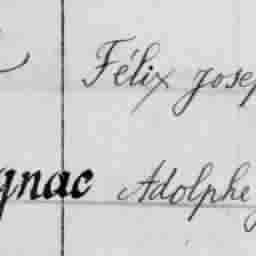 Félix Josep
gnac Adolphe